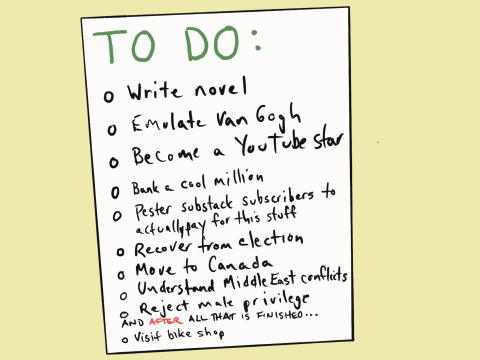 TO DO:
Write novel
Emulate Van Gogh
Become a YouTube star
Bank a cool million
Pester substack subscribers to
actually pay for this stuff
Recover from election
Move to Canada
Understand Middle East conflicts
Reject male privilege
AND AFTER ALL THAT IS FINISHED...
Visit bike shop